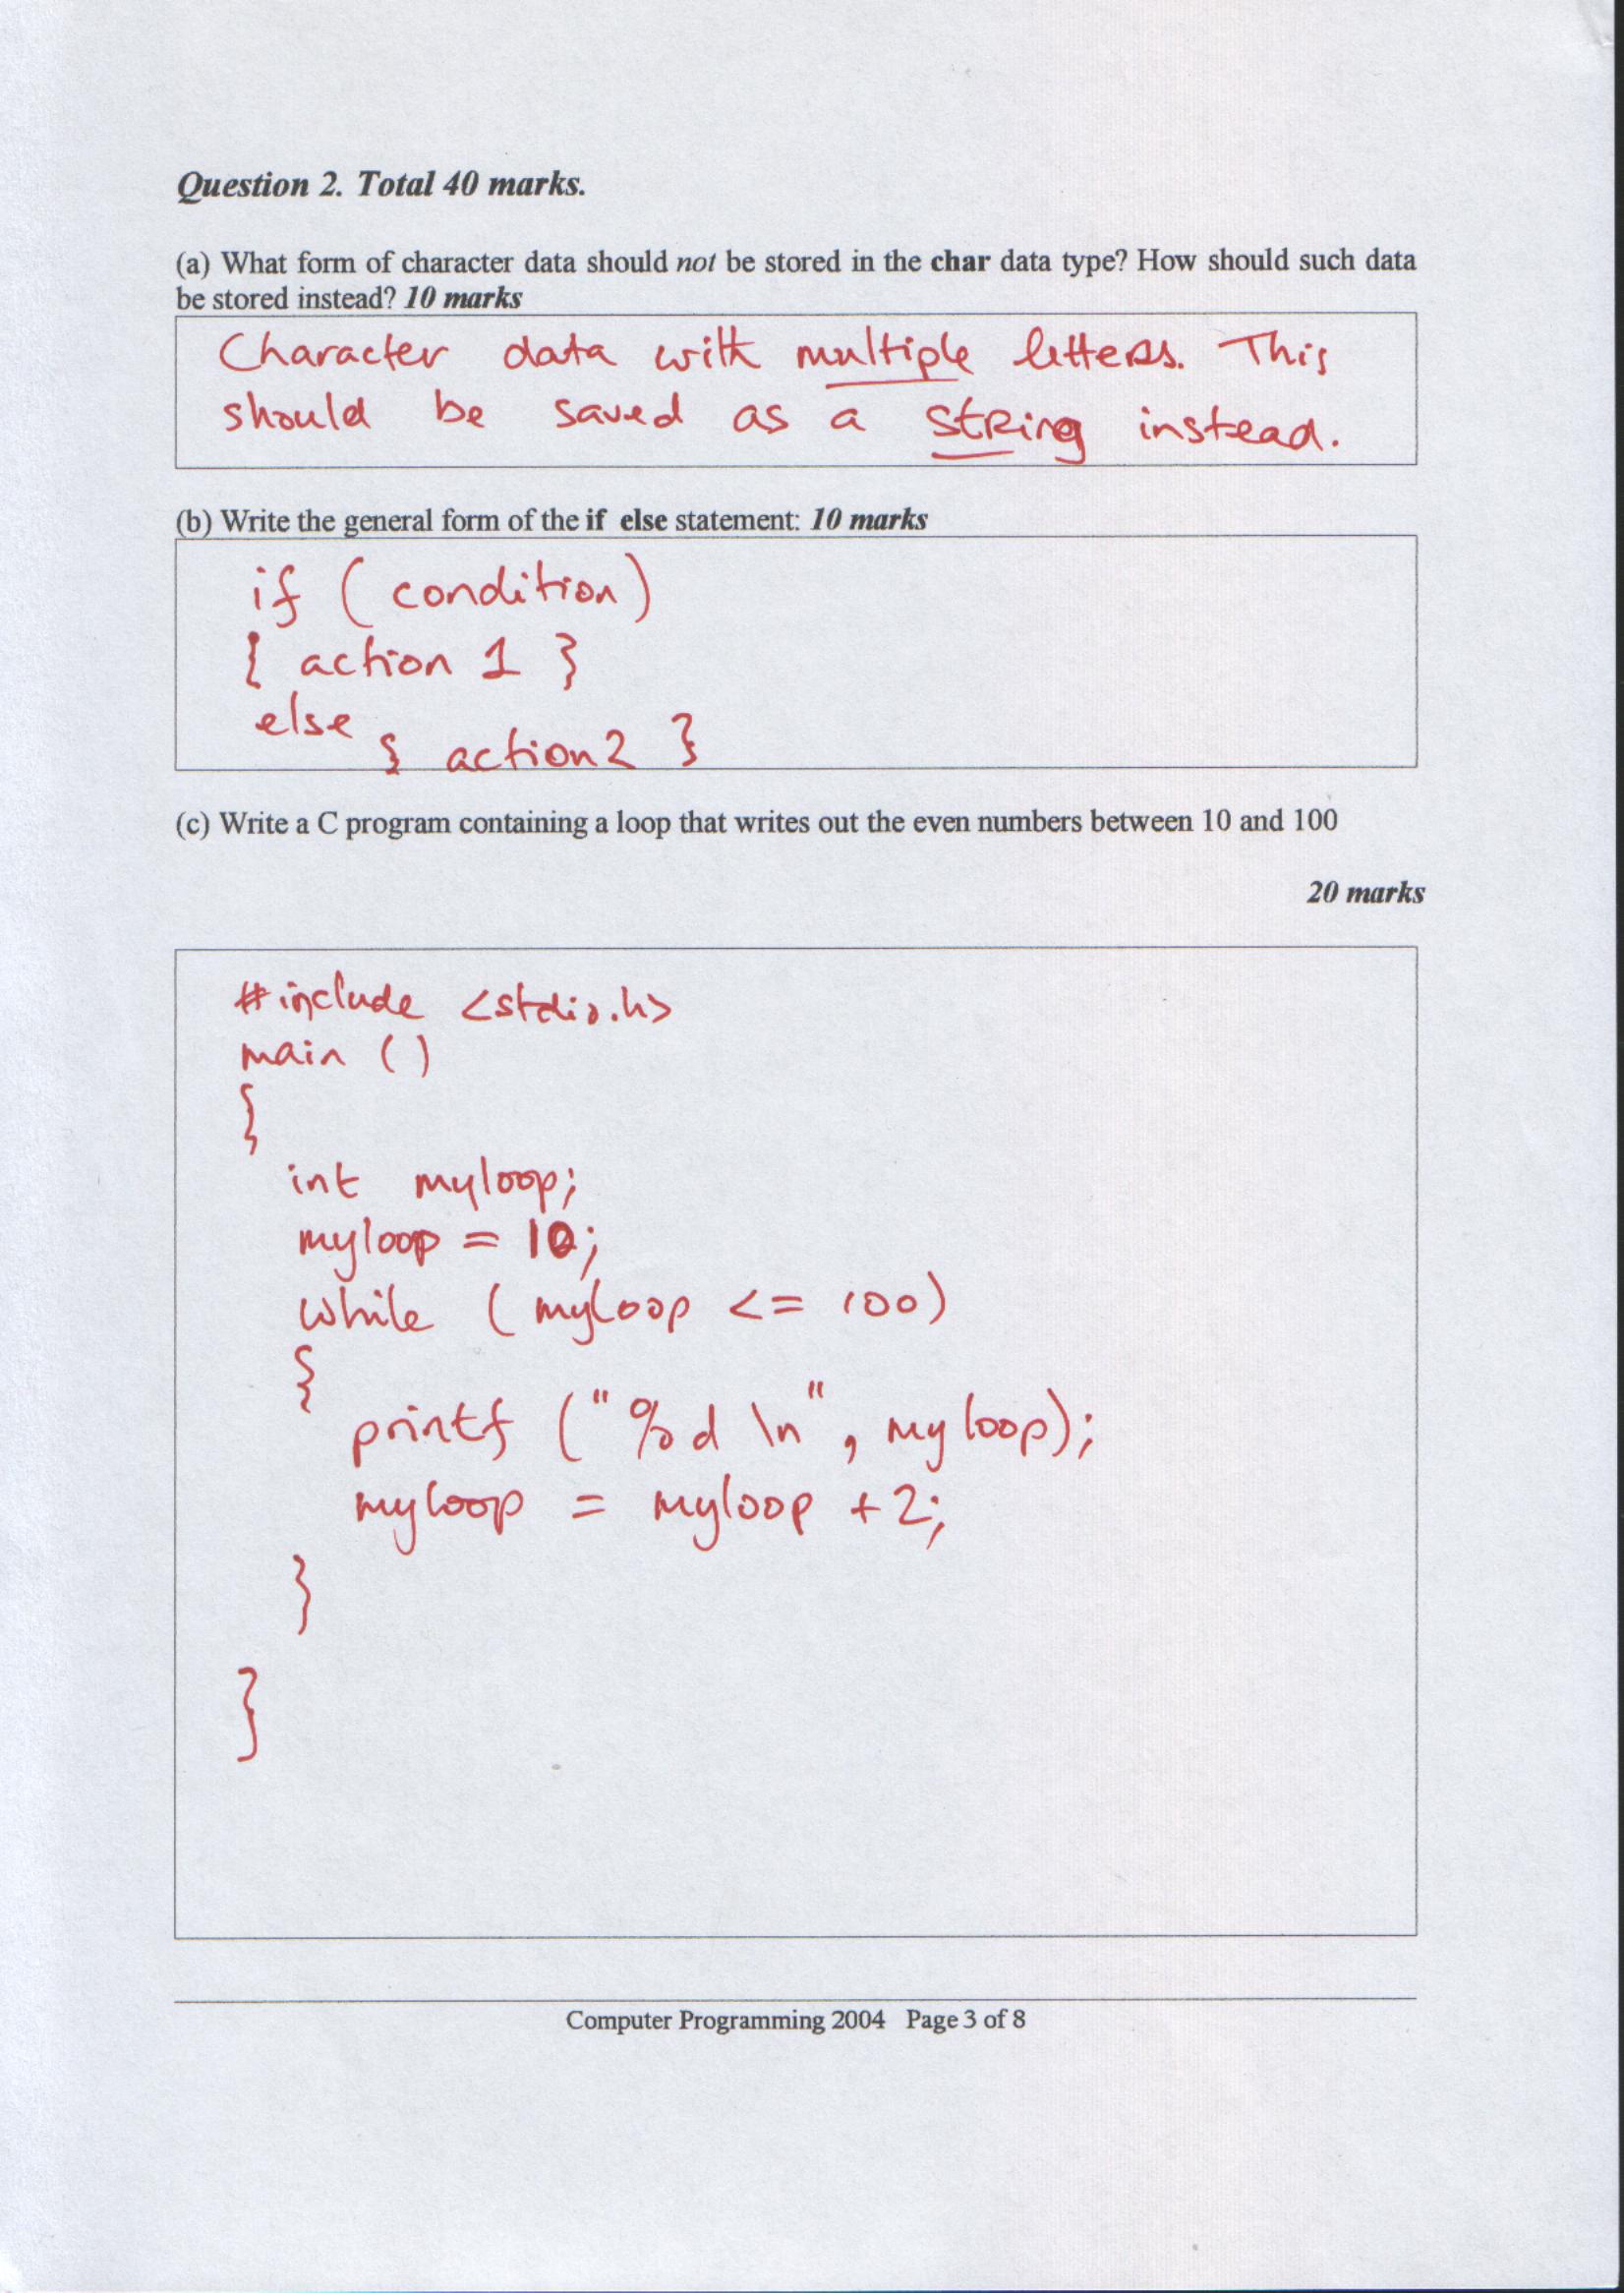 Question 2. Total 40 marks.
(a) What form of character data should not be stored in the char data type? How should such data
be stored instead? 10 marks
Character data with multiple letters. This
should be saved as a string instead.
(b) Write the general form of the if else statement: 10 marks
if ( condition )
{ action 1 }
else
{ action2 }
(c) Write a C program containing a loop that writes out the even numbers between 10 and 100
20 marks
#include <stdio.h>
main ()
{
int myloop;
myloop = 10;
while ( myloop <= 100)
{
printf ("%d \n", myloop);
myloop = myloop +2;
}
}
Computer Programming 2004 Page 3 of 8